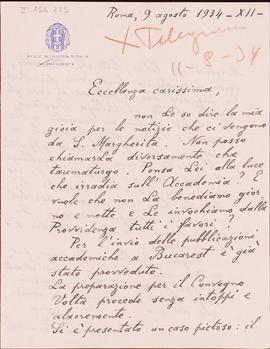 I° 154. 275
Roma, 9 agosto 1934 - XII -
REALE ACCADEMIA D'ITALIA
IL PRESIDENTE
x Telegramma
11-8-34
Eccellenza carissima,
non Le so dire la mia
gioia per le notizie che ci vengono
da S. Margherita. Non posso
chiamarla diversamente che
taumaturgo. Pensa Lei alla luce
che irradia sull'Accademia? E
vuole che non La benediamo gior
no e notte e Le invochiamo dalla
Provvidenza tutti i favori?
Per l'invio delle pubblicazioni
accademiche a Bucarest è già
stato provveduto.
La preparazione per il Convegno
Volta procede senza intoppi e
alacremente.
Si è presentato un caso pietoso: il